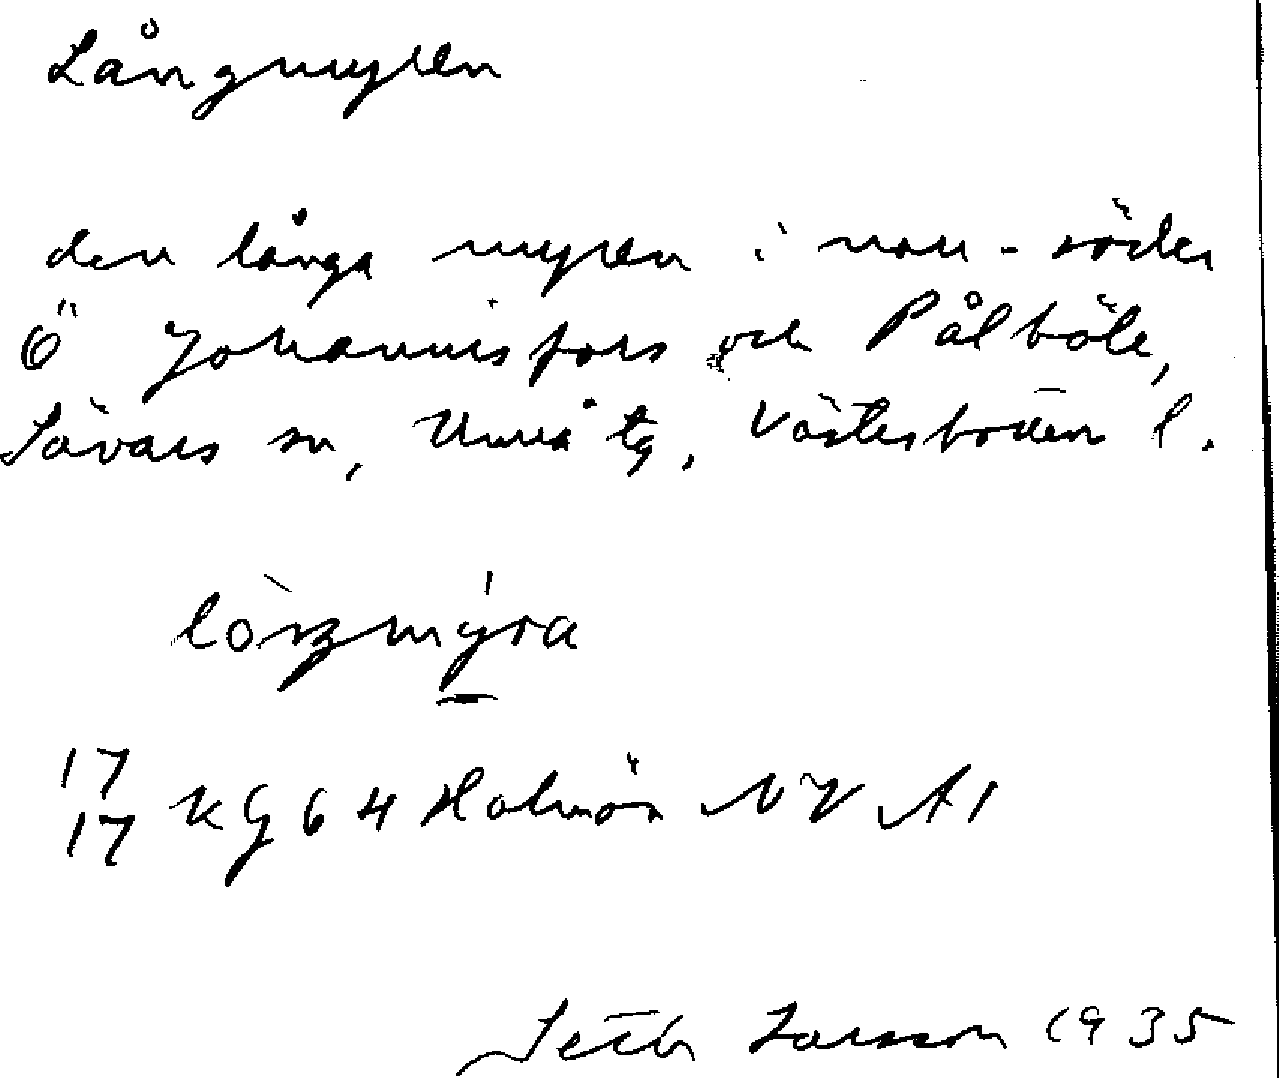 Långmyren
den långa myren i norr-söder
Ö Johannisfors och Pålböle,
Sävars sn, Umeå tg, Västerbotten l.
17 KG 64 Holmön NV A1
17
Seth Larsson 1935